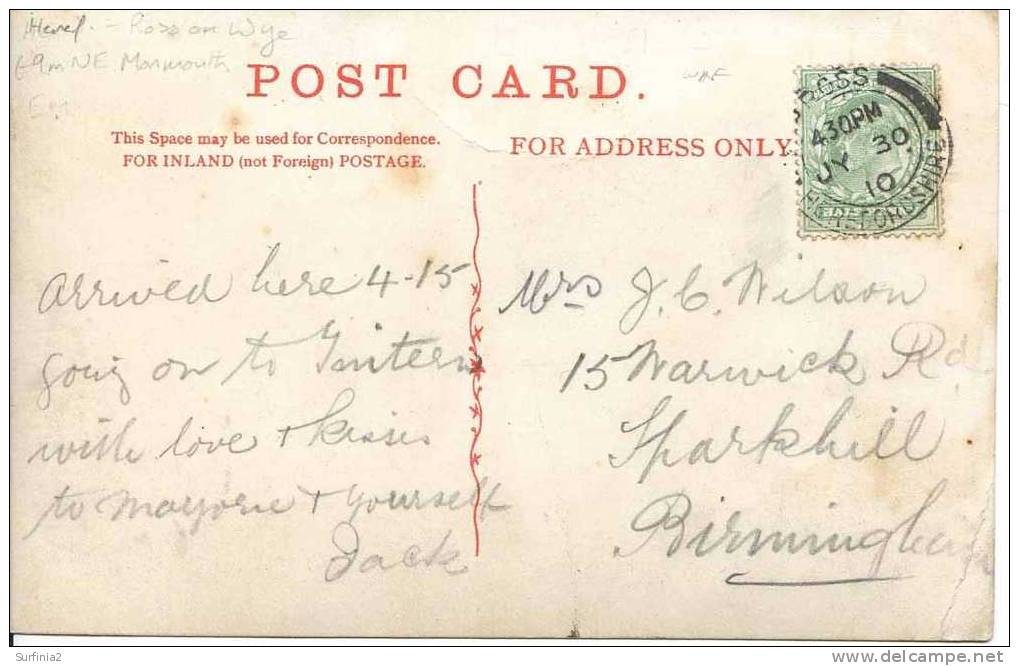 Heref. - Ross on Wye
9m NE Monmouth
POST CARD.
This Space may be used for Correspondence.
FOR INLAND (not Foreign) POSTAGE.
FOR ADDRESS ONLY
ROSS
4 30PM
JY 30
10
HEREFORDSHIRE
arrived here 4-15
going on to Tintern
with love + kisses
to Marjorie + yourself
Jack
Mrs J. C. Wilson
15 Warwick Rd
Sparkhill
Birmingham
Surfinia2
www.delcampe.net